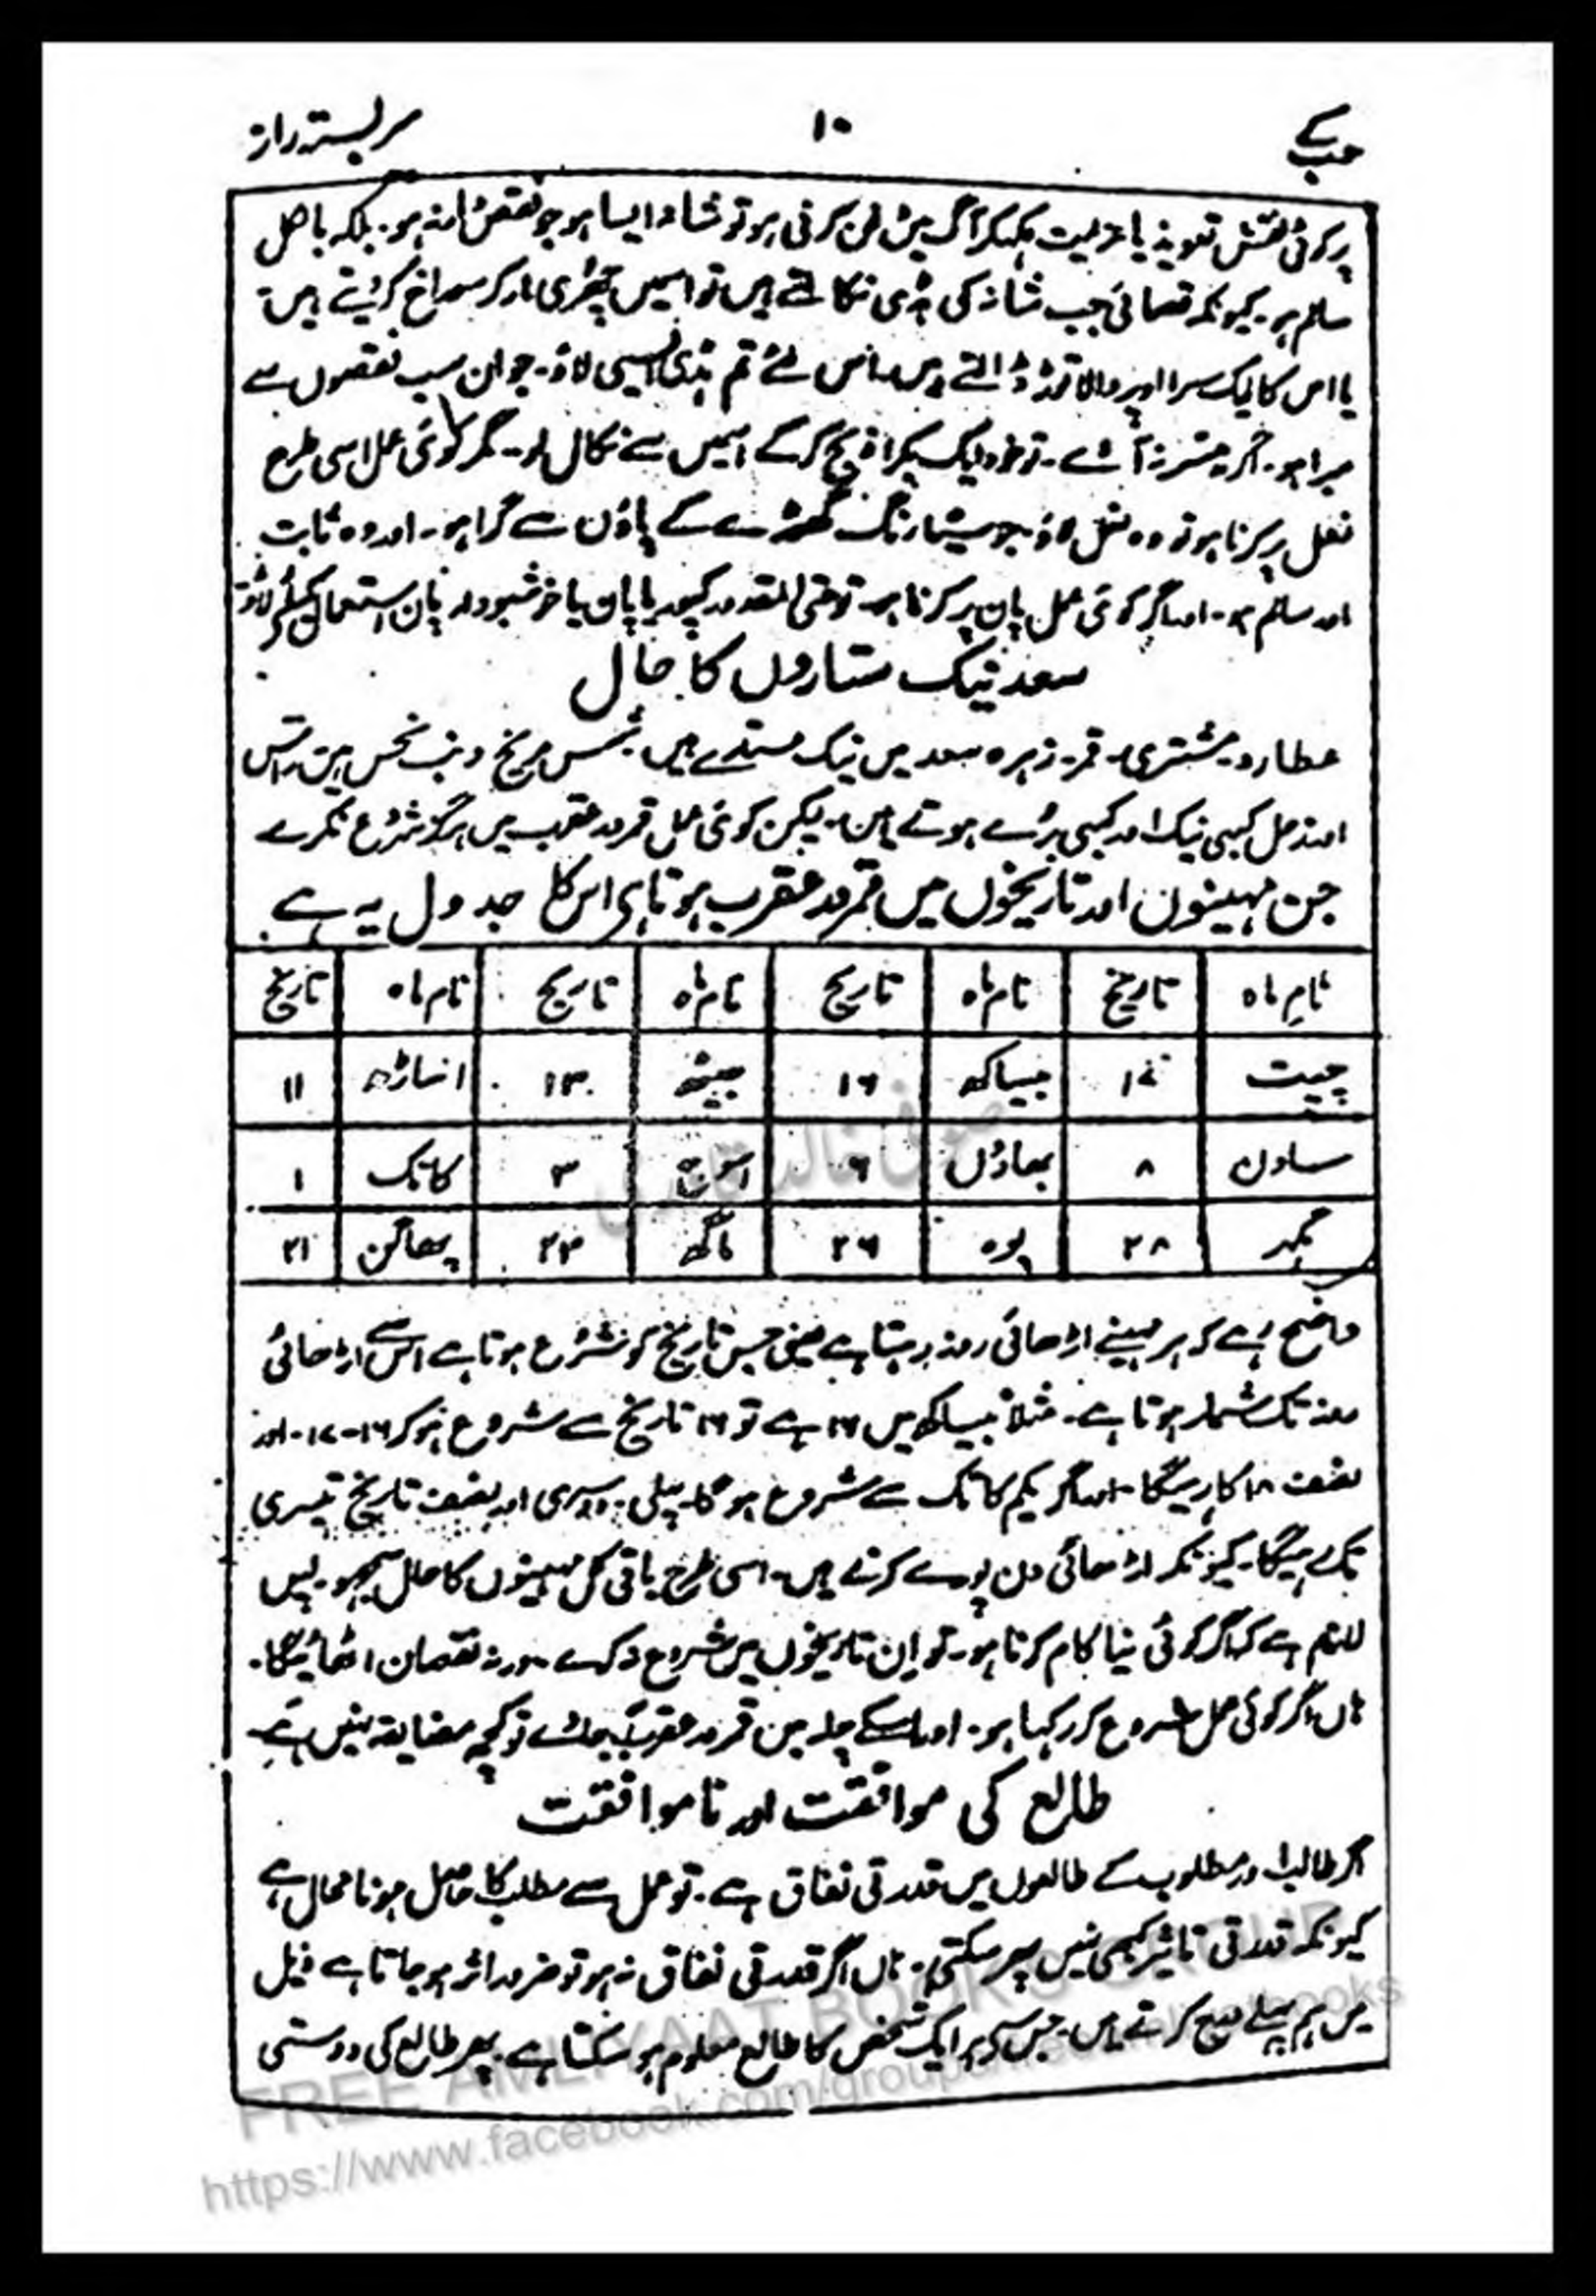 حب کے ۱۰ سربستہ راز
پر کوئی نقش تعویذ یا عزیمت لکھکر آگ میں دفن کرنی ہو تو شانہ ایسا ہو جو نقص دار نہ ہو۔ بلکہ بالکل
سالم ہو۔ کیونکہ قصائی جب شانہ کی ہڈی نکالتے ہیں تو اسمیں چھری مار کر سوراخ کر دیتے ہیں
یا اس کا ایک سرا اوپر والا توڑ ڈالتے ہیں۔ اس لئے تم ہڈی ایسی لاؤ۔ جو ان سب نقصوں سے
مبرا ہو۔ اگر میسر نہ آئے۔ تو خود ایک بکرا ذبح کر کے اسمیں سے نکال لو۔ مگر کوئی عمل اسی طرح
نعل پر کرنا ہو تو وہ نعل لاؤ جو سیاہ رنگ گھوڑے کے پاؤں سے گرا ہو۔ اور وہ ثابت
اور سالم ہو۔ اور اگر کوئی عمل پان پر کرنا ہو تو حتی المقدور کپوریا پان یا خوشبودار پان استعمال کیلئے لاؤ
سعد نیک ستاروں کا حال
عطارد۔ مشتری۔ قمر۔ زہرہ سعد میں نیک ستارے ہیں۔ شمس مریخ و ذنب نحس ہیں راس
اور زحل کبھی نیک اور کبھی برے ہوتے ہیں۔ لیکن کوئی عمل قمر در عقرب میں ہرگز شروع نکرے
جن مہینوں اور تاریخوں میں قمر در عقرب ہوتا ہے اس کا جدول یہ ہے۔
نام ماہ تاریخ نام ماہ تاریخ نام ماہ تاریخ نام ماہ تاریخ
چیت بیساکھ ۱۶ جیٹھ ۱۳ اساڑھ ۱۱
ساون ۸ بھادوں ۶ اسوج ۳ کاتک ۱
مگہر ۲۸ پوہ ۲۶ ماگھ ۲۳ پھاگن ۲۱
واضح رہے کہ ہر مہینے اڑھائی روز رہتا ہے یعنی جس تاریخ کو شروع ہوتا ہے اس سے اڑھائی
روز تک شمار ہوتا ہے۔ مثلاً بیساکھ میں ۱۶ ہے تو ۱۶ تاریخ سے شروع ہو کر ۱۶-۱۷- اور
نصف ۱۸ کا رہیگا۔ اور اگر یکم کاتک سے شروع ہو گا۔ پہلی۔ دوسری اور نصف تاریخ تیسری
تک رہیگا۔ کیونکہ اڑھائی دن پورے کرنے ہیں۔ اسی طرح باقی کل مہینوں کا حال سمجھو۔ پس
لازم ہے کہ اگر کوئی نیا کام کرنا ہو۔ تو ان تاریخوں میں شروع نہ کرے۔ ورنہ نقصان اٹھائیگا۔
ہاں اگر کوئی عمل شروع کر رکھا ہو۔ اور اسکے چلہ میں قمر در عقرب آجائے تو کچھ مضایقہ نہیں ہے
طالع کی موافقت اور ناموافقت
اگر طالب اور مطلوب کے طالعوں میں قدرتی نفاق ہے۔ تو عمل سے مطلب کا حاصل ہونا محال ہے
کیونکہ قدرتی تاثیر کبھی نہیں پھر سکتی۔ ہاں اگر قدرتی نفاق نہ ہو تو ضرور اثر ہو جاتا ہے ذیل
میں ہم پہلے درج کرتے ہیں۔ جس کہ ہر ایک شخص کا طالع معلوم ہو سکتا ہے۔ پھر طالع کی دوستی
صوفی خالد قادری
FREE AMLIYAAT BOOKS GROUP